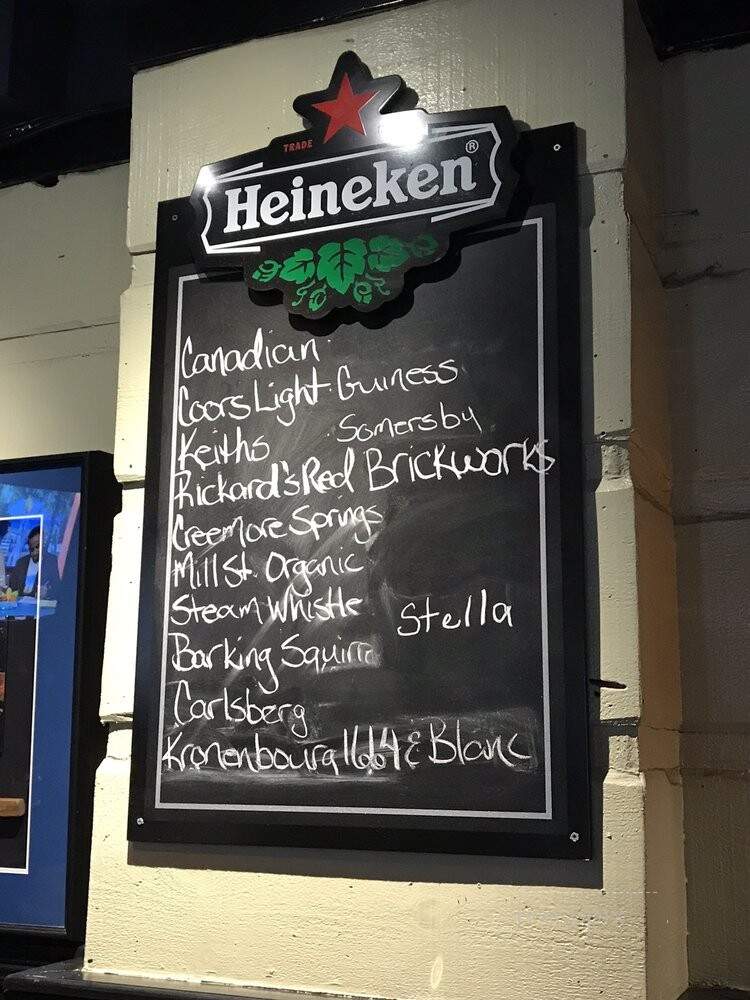 TRADE
Heineken®
Canadian
Coors Light Guiness
Keiths Somersby
Rickard's Red Brickworks
Creemore Springs
Mill St. Organic
Steam Whistle Stella
Barking Squirr
Carlsberg
Kronenbourg 1664 & Blanc